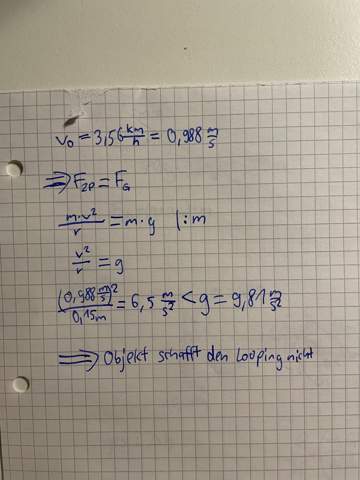 v₀ = 3,56 km/h = 0,988 m/s
⟹ F_ZP = F_G
m·v²/r = m·g |:m
v²/r = g
(0,988 m/s)²/0,15m = 6,5 m/s² < g = 9,81 m/s²
⟹ Objekt schafft den Looping nicht